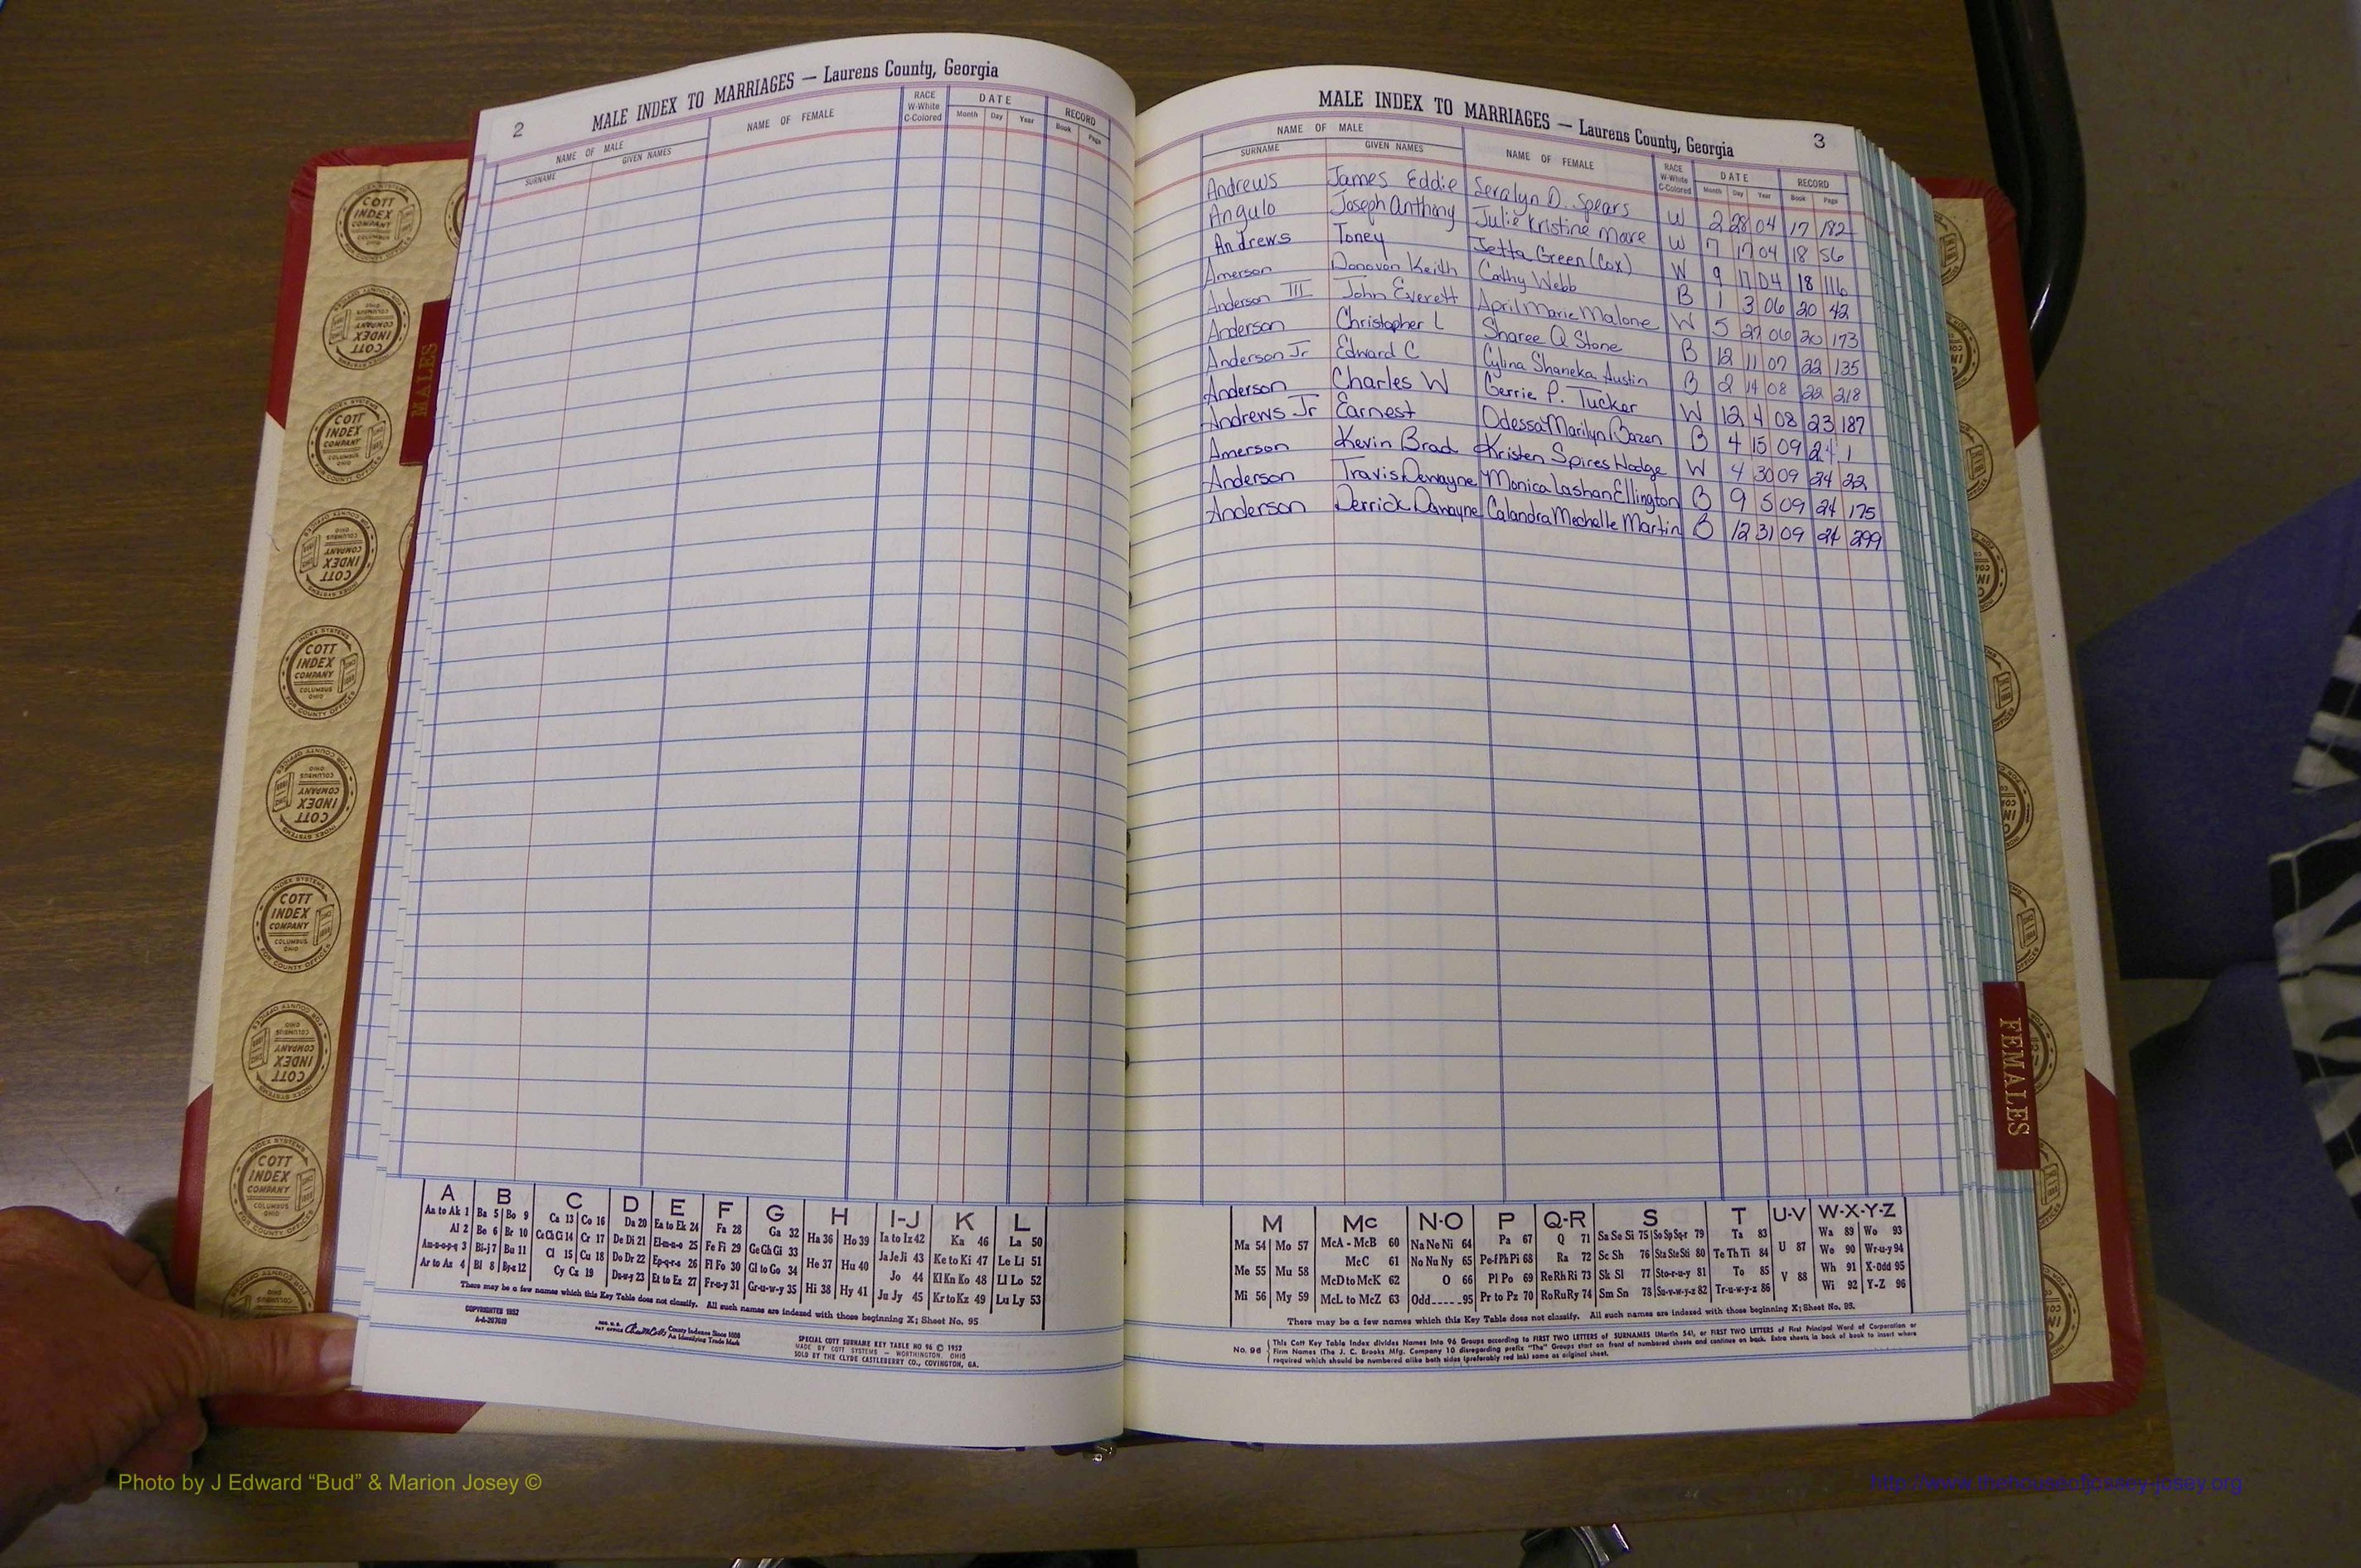 2
MALE INDEX TO MARRIAGES — Laurens County, Georgia
NAME OF MALE NAME OF FEMALE RACE W-White C-Colored DATE RECORD
SURNAME GIVEN NAMES Month Day Year Book Page
MALE INDEX TO MARRIAGES — Laurens County, Georgia 3
NAME OF MALE NAME OF FEMALE RACE W-White C-Colored DATE RECORD
SURNAME GIVEN NAMES Month Day Year Book Page
Andrews James Eddie Seralyn D. Spears W 2 28 04 17 182
Angulo Joseph Anthony Julie Kristine Mare W 7 17 04 18 56
Andrews Toney Jetta Green (Cox) W 9 17 04 18 116
Amerson Donovon Keith Cathy Webb B 1 3 06 20 42
Anderson III John Everett April Marie Malone W 5 27 06 20 173
Anderson Christopher L Sharee Q Stone B 12 11 07 22 135
Anderson Jr Edward C Cylina Shaneka Austin B 2 14 08 22 218
Anderson Charles W Gerrie P. Tucker W 12 4 08 23 187
Andrews Jr Earnest Odessa Marilyn Bazen B 4 15 09 24 1
Amerson Kevin Brad Kristen Spires Hodge W 4 30 09 24 22
Anderson Travis Dewayne Monica Lashan Ellington B 9 5 09 24 175
Anderson Derrick Dawayne Calandra Mechelle Martin B 12 31 09 24 299
MALES
FEMALES
COTT INDEX COMPANY
COLUMBUS OHIO
INDEX SYSTEMS FOR COUNTY OFFICES
A B C D E F G H I-J K L
Aa to Ak 1 Ba 5 Bo 9 Ca 13 Co 16 Da 20 Ea to Ek 24 Fa 28 Ga 32 Ha 36 Ho 39 Ia to Iz 42 Ka 46 La 50
Al 2 Be 6 Br 10 Ce Ch Ci 14 Cr 17 De Di 21 El-m-n-o 25 Fe Fi 29 Ge Gh Gi 33 He 37 Hu 40 Ja Je Ji 43 Ke to Ki 47 Le Li 51
Am-n-o-p-q 3 Bi-j 7 Bu 11 Cl 15 Cu 18 Do Dr 22 Ep-q-r-s 26 Fl Fo 30 Gl to Go 34 Hi 38 Hy 41 Jo 44 Kl Kn Ko 48 Ll Lo 52
Ar to Az 4 Bl 8 By-z 12 Cy Cz 19 Du-w-y 23 Et to Ez 27 Fr-u-y 31 Gr-u-w-y 35 Ju Jy 45 Kr to Kz 49 Lu Ly 53
There may be a few names which this Key Table does not classify. All such names are indexed with those beginning X; Sheet No. 95
COPYRIGHTED 1952
County Indexes Since 1888
An Identifying Trade Mark
SPECIAL COTT SURNAME KEY TABLE NO 96 © 1952
MADE BY COTT SYSTEMS — WORTHINGTON, OHIO
SOLD BY THE CLYDE CASTLEBERRY CO., COVINGTON, GA.
M Mc N-O P Q-R S T U-V W-X-Y-Z
Ma 54 Mo 57 McA - McB 60 Na Ne Ni 64 Pa 67 Q 71 Sa Se Si 75 So Sp Sq-r 79 Ta 83 U 87 Wa 89 Wo 93
Me 55 Mu 58 McC 61 No Nu Ny 65 Pe-f Ph Pi 68 Ra 72 Sc Sh 76 Sta Ste Sti 80 Te Th Ti 84 V 88 We 90 Wr-u-y 94
Mi 56 My 59 McD to McK 62 O 66 Pl Po 69 Re Rh Ri 73 Sk Sl 77 Sto-r-u-y 81 To 85 Wh 91 X-Odd 95
McL to McZ 63 Odd 95 Pr to Pz 70 Ro Ru Ry 74 Sm Sn 78 Su-v-w-y-z 82 Tr-u-w-y-z 86 Wi 92 Y-Z 96
There may be a few names which this Key Table does not classify. All such names are indexed with those beginning X; Sheet No. 95.
No. 96 This Cott Key Table Index divides Names into 96 Groups according to FIRST TWO LETTERS of SURNAMES (Martin 54), or FIRST TWO LETTERS of First Principal Word of Corporation or
Firm Names (The J. C. Brooks Mfg. Company 10 disregarding prefix "The" Groups start on front of numbered sheets and continue on back. Extra sheets in back of book to insert where
required which should be numbered alike both sides (preferably red ink) same as original sheet.
Photo by J Edward “Bud” & Marion Josey ©
http://www.thehouseofjossey-josey.org